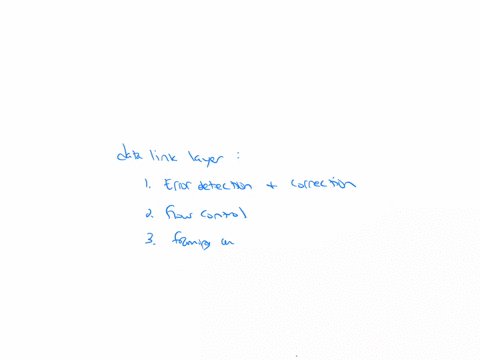 data link layer :
1. Error detection + correction
2. flow control
3. framing